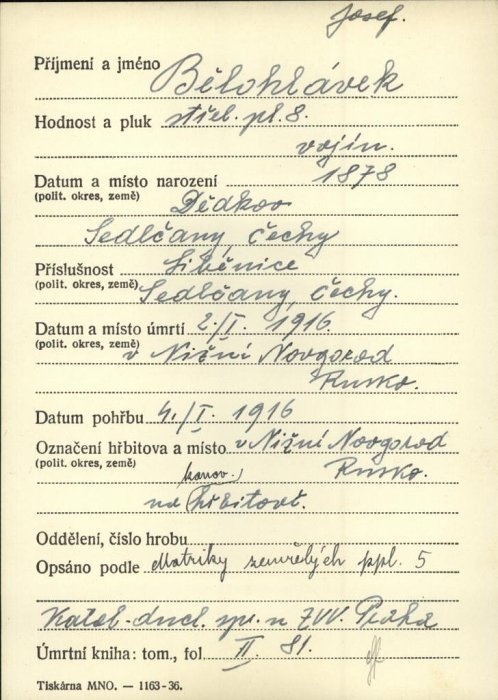 Josef.
Příjmení a jméno Bělohlávek
Hodnost a pluk střel. pl. 8.
vojín.
Datum a místo narození 1878
(polit. okres, země) Dědkov
Sedlčany, Čechy
Příslušnost Liběnice
(polit. okres, země) Sedlčany, Čechy.
Datum a místo úmrtí 2./I. 1916.
(polit. okres, země) v Nižní Novgorod
Rusko.
Datum pohřbu 4./I. 1916
Označení hřbitova a místo v Nižní Novgorod
(polit. okres, země) Rusko.
na hřbitově.
Oddělení, číslo hrobu
Opsáno podle Matriky zemřelých ppl. 5
Katol. duch. spr. u ZVV. Praha
Úmrtní kniha: tom., fol. II. 81.
Tiskárna MNO. — 1163-36.